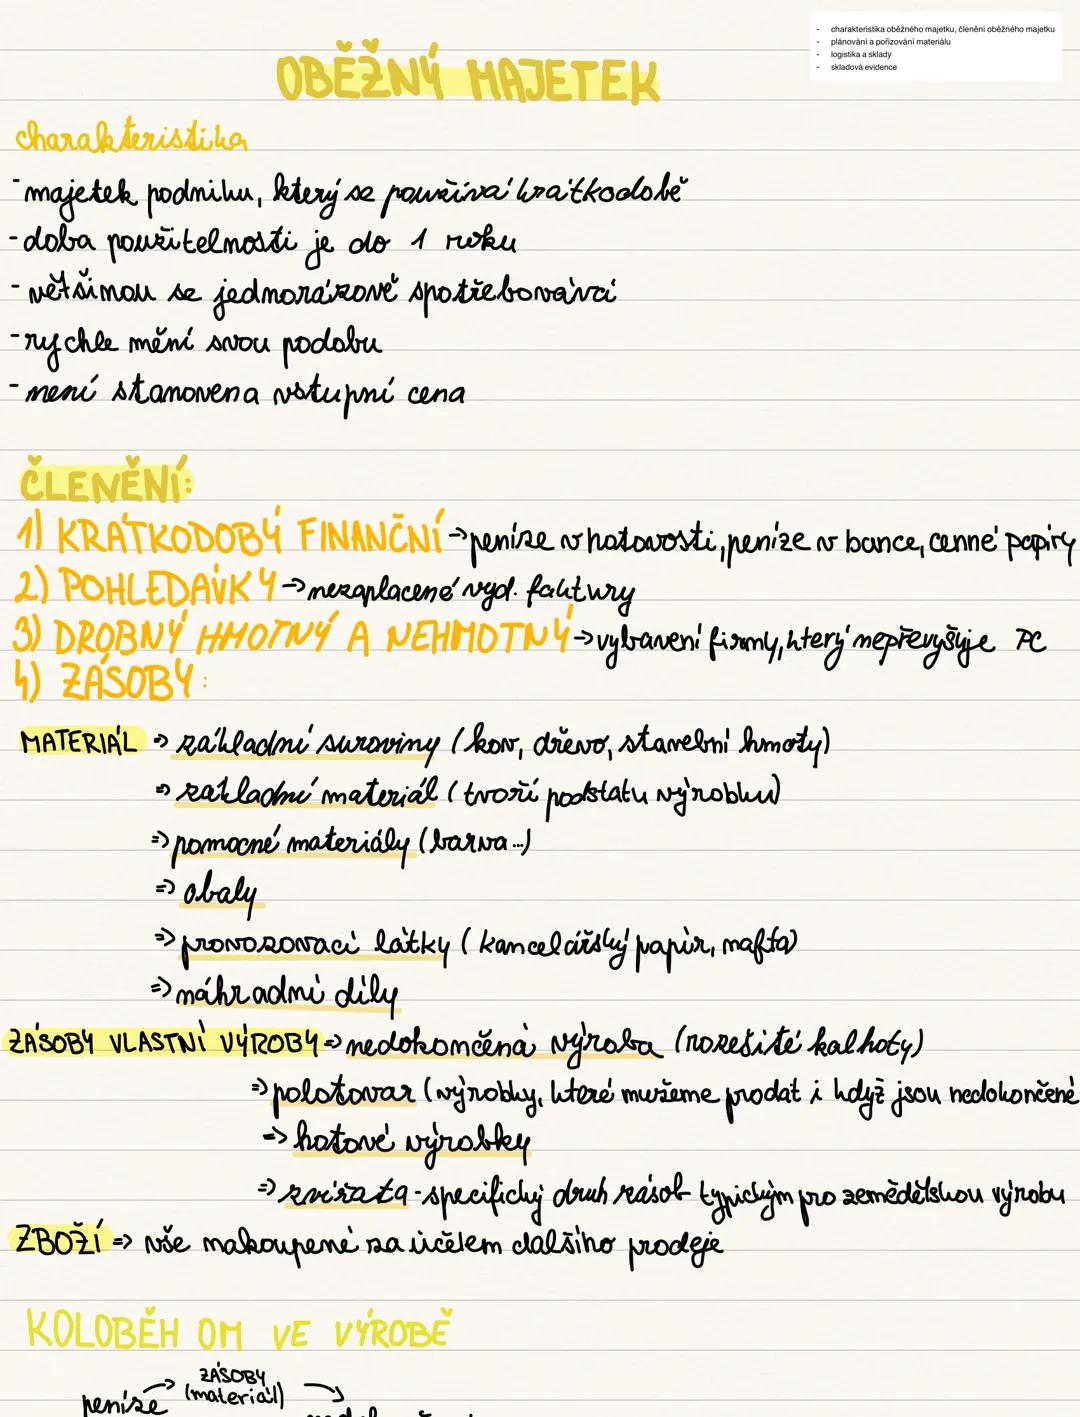 - charakteristika oběžného majetku, členění oběžného majetku
- plánování a pořizování materiálu
- logistika a sklady
- skladová evidence
OBĚŽNÝ MAJETEK
charakteristika
- majetek podniku, který se používá krátkodobě
- doba použitelnosti je do 1 roku
- většinou se jednorázově spotřebovává
- rychle mění svou podobu
- není stanovena vstupní cena
ČLENĚNÍ:
1) KRÁTKODOBÝ FINANČNÍ → peníze v hotovosti, peníze v bance, cenné papíry
2) POHLEDÁVKY → nezaplacené vyd. faktury
3) DROBNÝ HMOTNÝ A NEHMOTNÝ → vybavení firmy, který nepřevyšuje PC
4) ZÁSOBY:
MATERIÁL => základní suroviny (kov, dřevo, stavební hmoty)
=> základní materiál (tvoří podstatu výrobku)
=> pomocné materiály (barva...)
=> obaly
=> provozovací látky (kancelářský papír, nafta)
=> náhradní díly
ZÁSOBY VLASTNÍ VÝROBY => nedokončená výroba (rozešité kalhoty)
=> polotovar (výrobky, které mužeme prodat i když jsou nedokončené
=> hotové výrobky
=> zvířata - specifický druh zásob typickým pro zemědělskou výrobu
ZBOŽÍ => vše nakoupené za účelem dalšího prodeje
KOLOBĚH OM VE VÝROBĚ
ZÁSOBY
peníze → (materiál) →